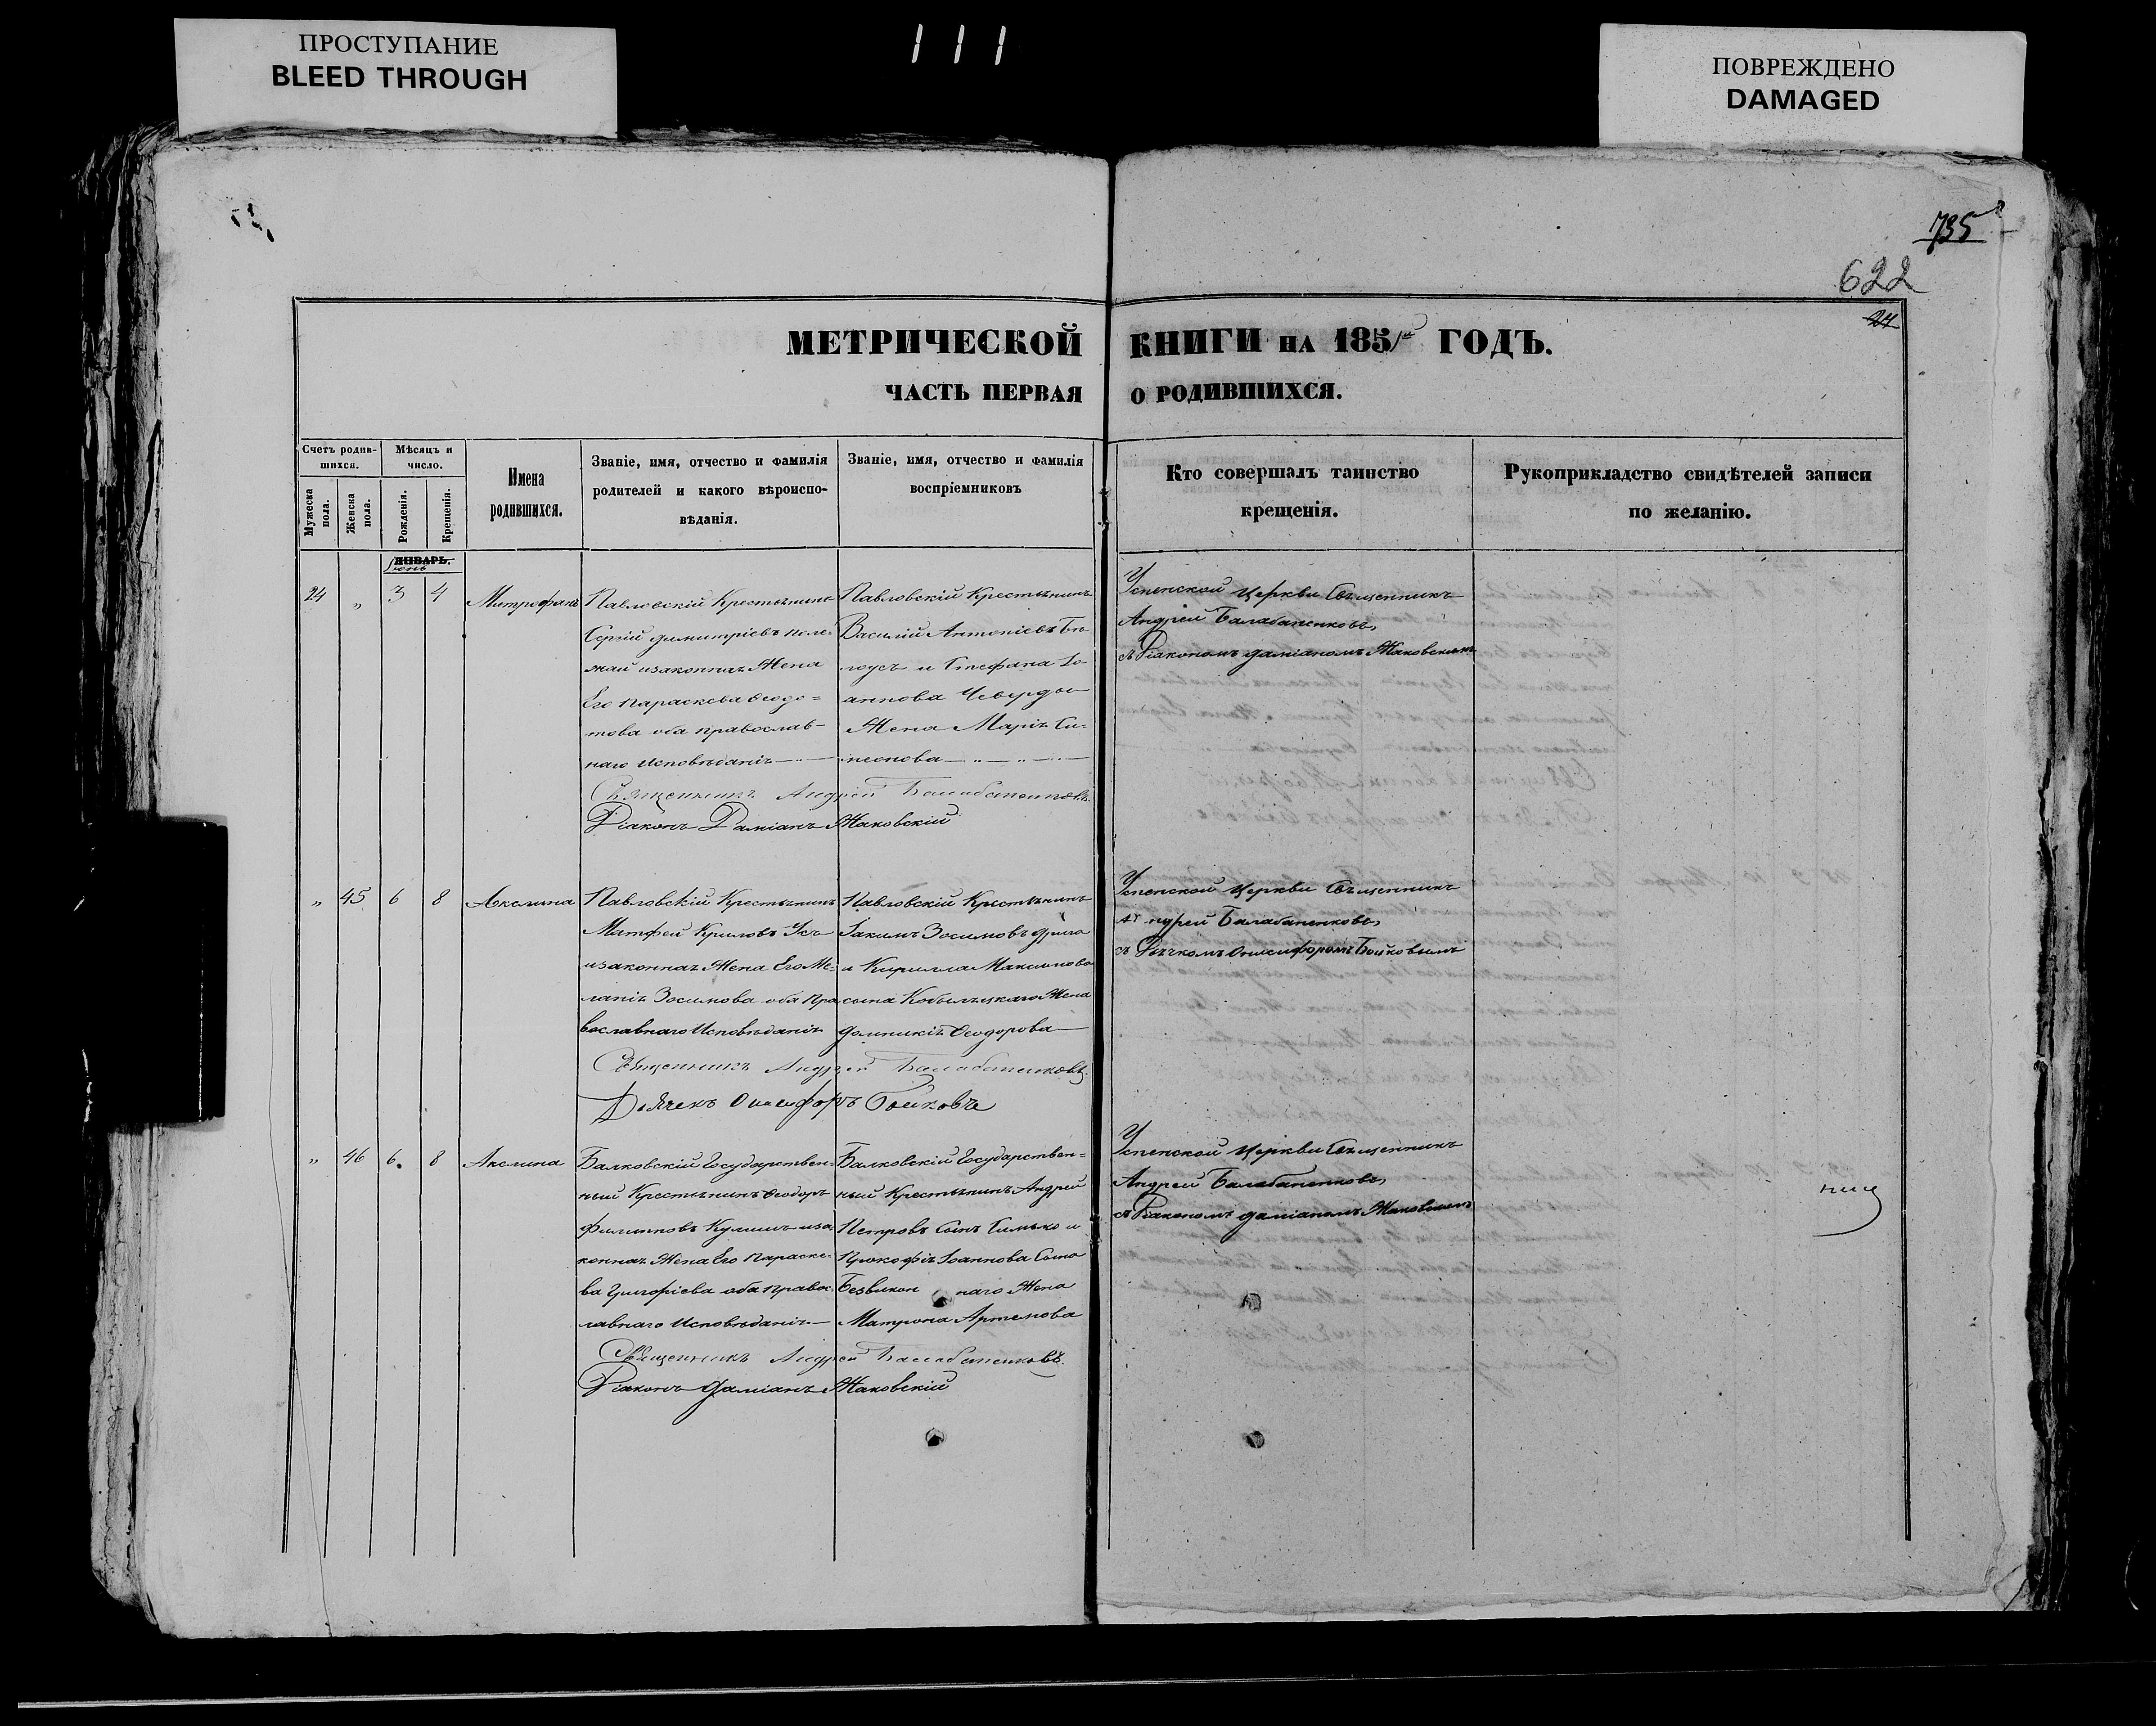 ПРОСТУПАНИЕ
BLEED THROUGH
111
ПОВРЕЖДЕНО
DAMAGED
735
622
24
МЕТРИЧЕСКОЙ КНИГИ НА 1851 ГОДЪ.
ЧАСТЬ ПЕРВАЯ О РОДИВШИХСЯ.
Счетъ родив-
шихся.
Мужеска пола.
Женска пола.
Мѣсяцъ и
число.
Рожденія.
Крещенія.
Имена
родившихся.
Званіе, имя, отчество и фамилія
родителей и какого вѣроиспо-
вѣданія.
Званіе, имя, отчество и фамилія
воспріемниковъ
Кто совершалъ таинство
крещенія.
Рукоприкладство свидѣтелей записи
по желанію.
ЯНВАРЬ.
24 „ 3 4 Митрофанъ
Павловскій Крестьянинъ
Сергій Димитріевъ
изаконная Жена
Его Параскева Феодо=
това оба православ-
наго Исповѣданія
Павловскій Крестьянинъ
Василій Антоніевъ Бѣ-
лоусъ и Стефана Іо-
аннова
Жена Марія Си-
меонова
Священникъ Андрей Балабаненковъ
Діаконъ Даміанъ Жаковскій
Успенской Церкви Священникъ
Андрей Балабаненковъ,
съ Діакономъ Даміаномъ Жаковскимъ
„ 45 6 8 Акелина
Павловскій Крестьянинъ
Матфей
изаконная Жена Его Ме-
ланія Зосимова оба пра
вославнаго Исповѣданія
Павловскій Крестьянинъ
Іакимъ Зосимовъ
и Кирилла Максимова
сына Кобыляцкаго Жена
Домникія Феодорова
Священникъ Андрей Балабаненковъ
Дьячекъ Онисифоръ Бойковъ
Успенской Церкви Священникъ
Андрей Балабаненковъ,
съ Дьячкомъ Онисифоромъ Бойковымъ
„ 46 6. 8 Акелина
Балковскій Государствен=
ный Крестьянинъ Феодоръ
Филиповъ иза
конная Жена Его Параске-
ва Григоріева оба правос
лавнаго Исповѣданія
Балковскій Государствен=
ный Крестьянинъ Андрей
Петровъ Сынъ Симько и
Прокофія Іоаннова Сына
Жена
Матрона Артемова
Священникъ Андрей Балабаненковъ
Діаконъ Даміанъ Жаковскій
Успенской Церкви Священникъ
Андрей Балабаненковъ,
съ Діакономъ Даміаномъ Жаковскимъ